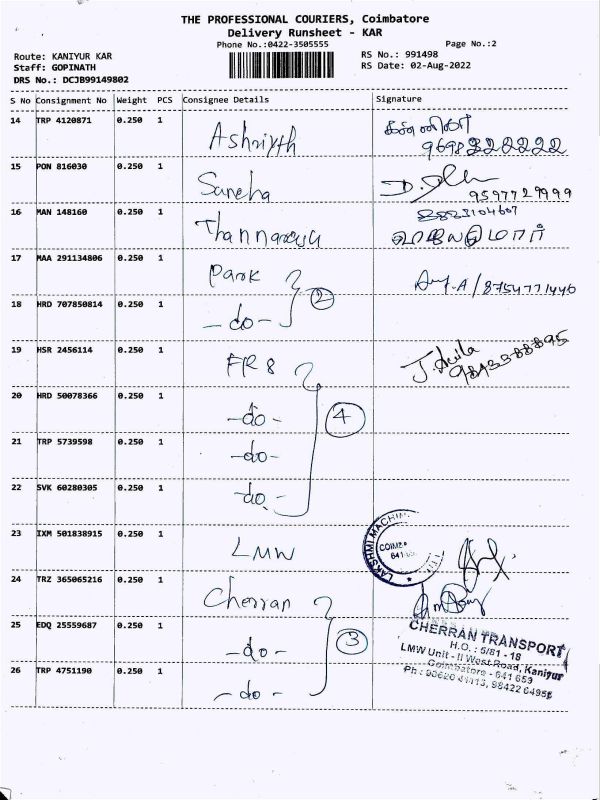 THE PROFESSIONAL COURIERS, Coimbatore
Delivery Runsheet - KAR
Phone No.:0422-3505555
Page No.:2
Route: KANIYUR KAR
Staff: GOPINATH
DRS No.: DCJB99149802
RS No.: 991498
RS Date: 02-Aug-2022
S No Consignment No Weight PCS Consignee Details Signature
14 TRP 4120871 0.250 1
15 PON 816030 0.250 1 Suneha
9597729999
16 MAN 148160 0.250 1
8823104607
17 MAA 291134806 0.250 1 Park 2 / 8754771446
18 HRD 707850814 0.250 1 -do-
19 HSR 2456114 0.250 1 FR 8 4
20 HRD 50078366 0.250 1 -do-
21 TRP 5739598 0.250 1 -do-
22 SVK 60280305 0.250 1 -do-
23 IXM 501838915 0.250 1 LMW
LAKSHMI MACHIN
24 TRZ 365065216 0.250 1 Cherran 3
25 EDQ 25559687 0.250 1 -do-
26 TRP 4751190 0.250 1 -do-
CHERRAN TRANSPORT
H.O. : 5/81 - 18
LMW Unit - II West Road, Kaniyur
Coimbatore - 641 659
Ph :